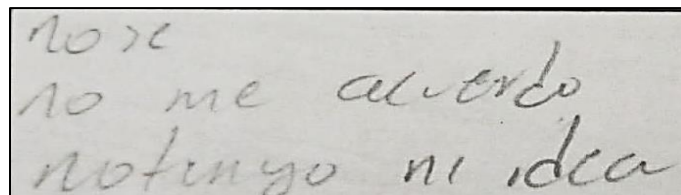 nose
no me acuerdo
notengo ni idea